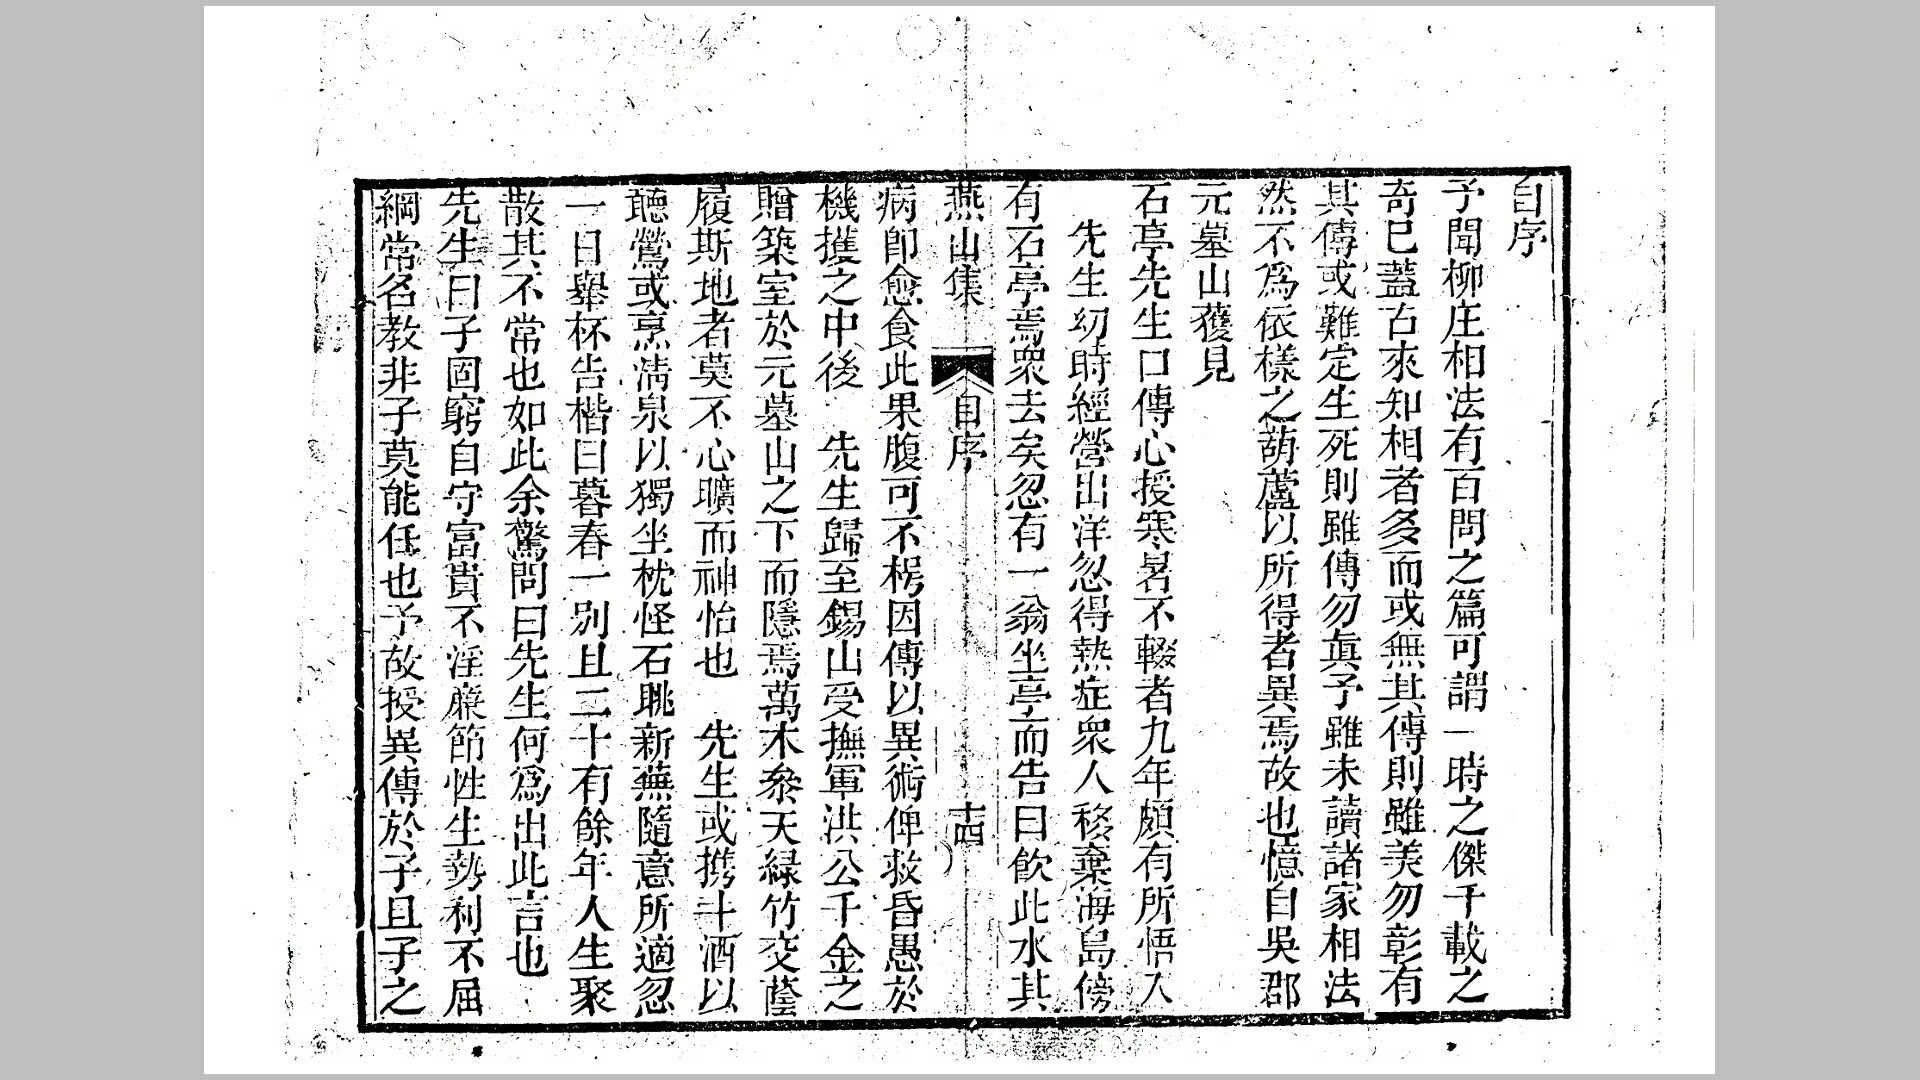 自序
予聞柳庄相法有百問之篇可謂一時之傑千載之
奇已蓋古來知相者多而或無其傳則雖美勿彰有
其傳或難定生死則雖傳勿眞予雖未讀諸家相法
然不爲依樣之葫蘆以所得者異焉故也憶自吳郡
元墓山獲見
石亭先生口傳心授寒暑不輟者九年頗有所悟入
先生幼時經營出洋忽得熱症衆人移棄海島傍
有石亭焉衆去矣忽有一翁坐亭而告曰飲此水其
燕山集 自序 十四
病卽愈食此果腹可不枵因傳以異術俾救昏愚於
機擭之中後 先生歸至錫山受撫軍洪公千金之
贈築室於元墓山之下而隱焉萬木參天綠竹交蔭
履斯地者莫不心曠而神怡也 先生或携斗酒以
聽鶯或烹淸泉以獨坐枕怪石眺新蕪隨意所適忽
一日舉杯告楷曰暮春一別且二十有餘年人生聚
散其不常也如此余驚問曰先生何爲出此言也
先生曰子固窮自守富貴不淫糜節性生勢利不屈
綱常名教非子莫能任也予故授異傳於子且子之